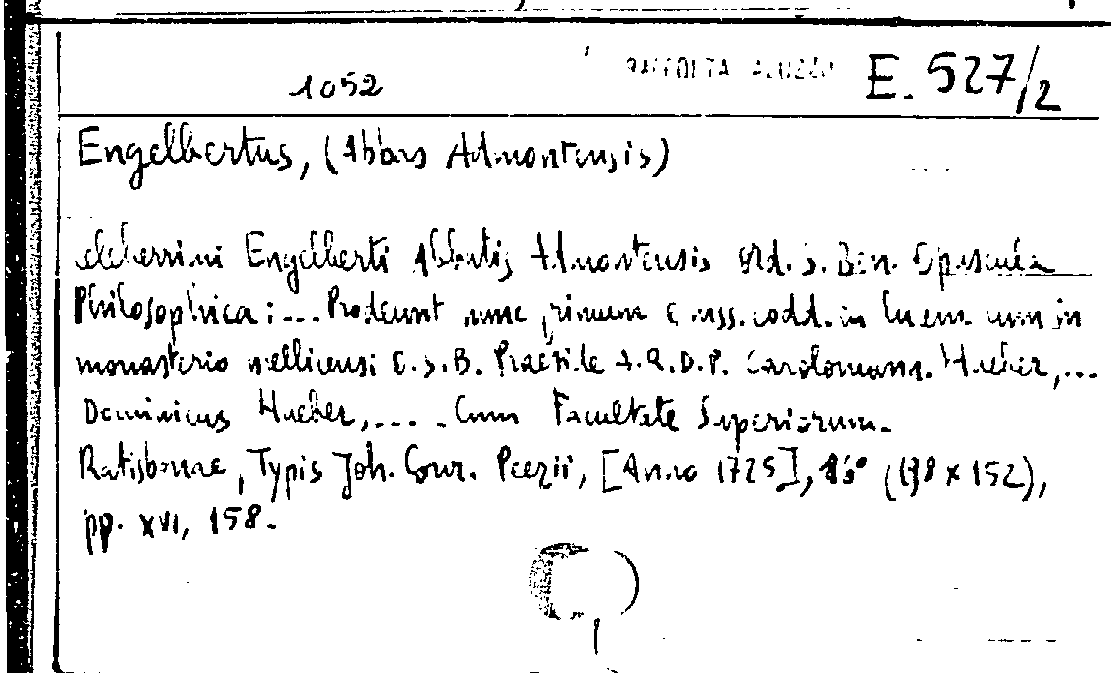 1052 RACCOLTA E. 527/2
Engelbertus, (Abbas Admontensis)
Celeberrimi Engelberti Abbatis Admontensis Ord. S. Ben. Opuscula
Philosophica: ... Prodeunt nunc primum e mss. codd. in lucem cum in
monasterio Mellicensi O.S.B. Praeside A.R.D.P. Carolomann. Hueber, ...
Dominicus Hueber, .... Cum Facultate Superiorum.
Ratisbonae, Typis Joh. Conr. Peezii, [Anno 1725], (198 x 152),
pp. XVI, 158.